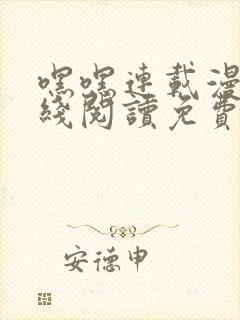 嘿嘿連載漫
綫閱讀免費
安德申